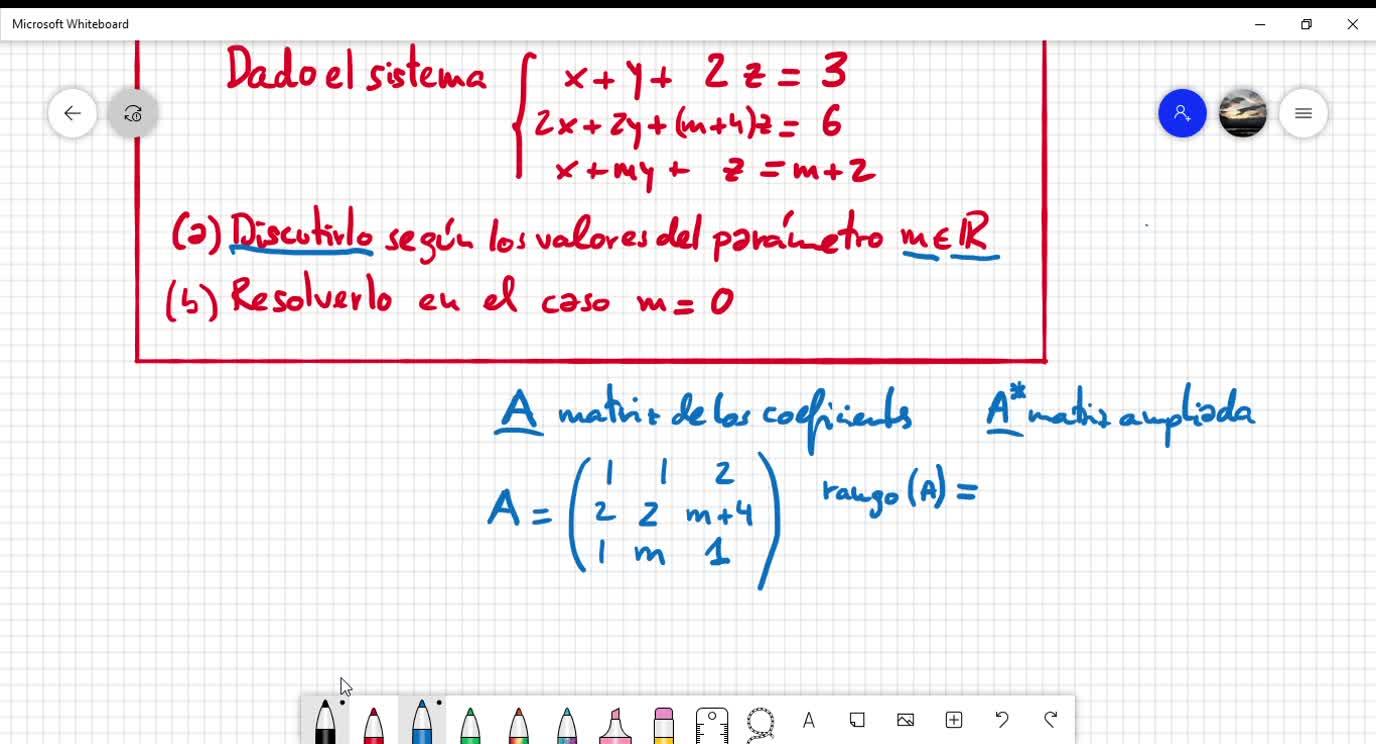 Microsoft Whiteboard
Dado el sistema { x + y + 2 z = 3
2x + 2y + (m+4)z = 6
x + my + z = m + 2
(a) Discutirlo según los valores del parámetro m ∈ ℝ
(b) Resolverlo en el caso m = 0
A matriz de los coeficientes A* matriz ampliada
A = ( 1 1 2 rango (A) =
2 2 m+4
1 m 1 )
A